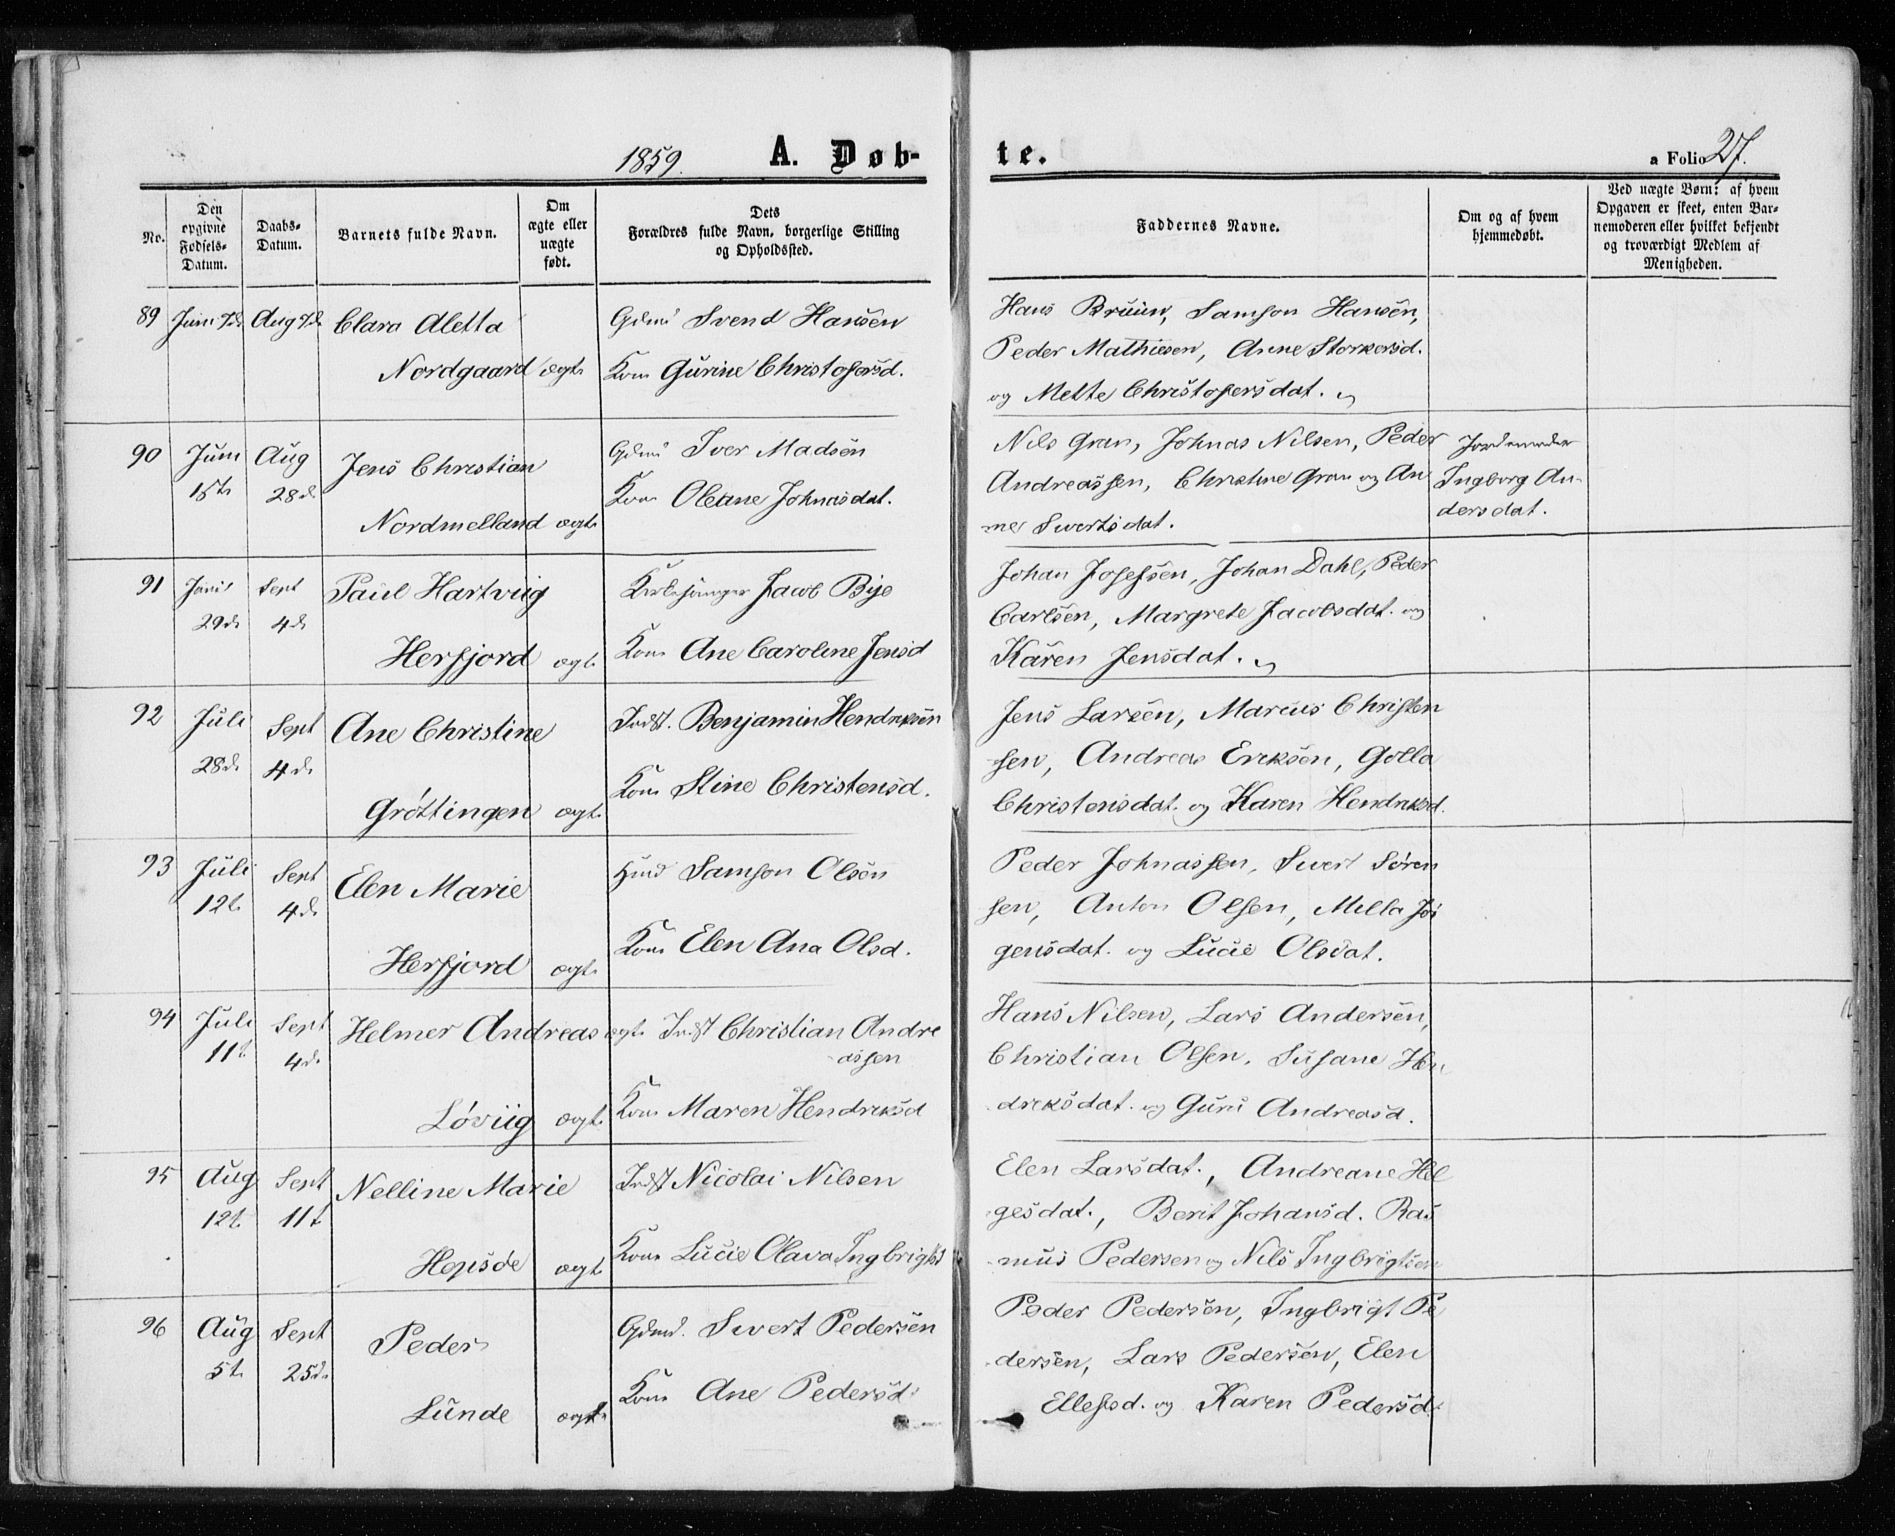 1859. A. Døb- te. a Folio 27.
No.
Den opgivne Fødsels-Datum.
Daabs-Datum.
Barnets fulde Navn.
Om ægte eller uægte født.
Dets Forældres fulde Navn, borgerlige Stilling og Opholdssted.
Faddernes Navne.
Om og af hvem hjemmedøbt.
Ved uægte Børn: af hvem Opgaven er skeet, enten Barnemoderen eller hvilket bekjendt og troværdigt Medlem af Menigheden.
89 Juni 7d Aug 7d Clara Aletta
Nordgaard ægt.
Gdmd Svend Hansen
Kone Gurine Christofersd.
Hans Bruun, Samson Hansen,
Peder Mathiesen, Anne Storkersd.
og Mette Christofersdat.
90 Juni 15t Aug 28d Jens Christian
Nordmelland ægt.
Gdmd Iver Madsen
Kone Oleane Johnasdat.
Nils Gran, Johnas Nilsen, Peder
Andreassen, Christine Gran og An
ne Sivertsdat.
Jordemoder
Ingborg An-
dersdat.
91 Juni 29d Sept 4d Paul Hartviig
Herfjord ægt.
Kirkesanger Jacob Bye
Kone Ane Caroline Jensd
Johan Josefsen, Johan Dahl, Peder
Carlsen, Margrete Jacobsdat. og
Karen Jensdat.
92 Juli 28d Sept 4d Ane Christine
Grøttingen ægt.
Indst. Benjamin Hendriksen
Kone Stine Christensd.
Jens Larsen, Marcus Christen
sen, Andreas Eriksen, Golla
Christensdat. og Karen Hendriksd.
93 Juli 12t Sept 4d Elen Marie
Herfjord ægt.
Husmd Samson Olsen
Kone Elen Ana Olsd.
Peder Johnassen, Sivert Søren
sen, Anton Olsen, Mella Jør
gensdat. og Lucie Olsdat.
94 Juli 11t Sept 4d Helmer Andreas ægt.
Løviig ægt.
Indst Christian Andre
assen
Kone Maren Hendriksd
Hans Nilsen, Lars Andersen,
Christian Olsen, Susane Hen
driksdat. og Guru Andreasd.
95 Aug 12t Sept 11t Nelline Marie
Hopsøe ægt.
Indst Nicolai Nilsen
Kone Lucie Olava Ingbrigtsd
Elen Larsdat., Andreane Hel
gesdat., Berit Johansd. Ras
mus Pedersen og Nils Ingbrigtsen
96 Aug 5t Sept 25d Peder
Lunde ægt.
Gdmd. Sivert Pedersen
Kone Ane Pedersd.
Peder Pedersen, Ingbrigt Pe
dersen, Lars Pedersen, Elen
Ellefsd. og Karen Pedersd.